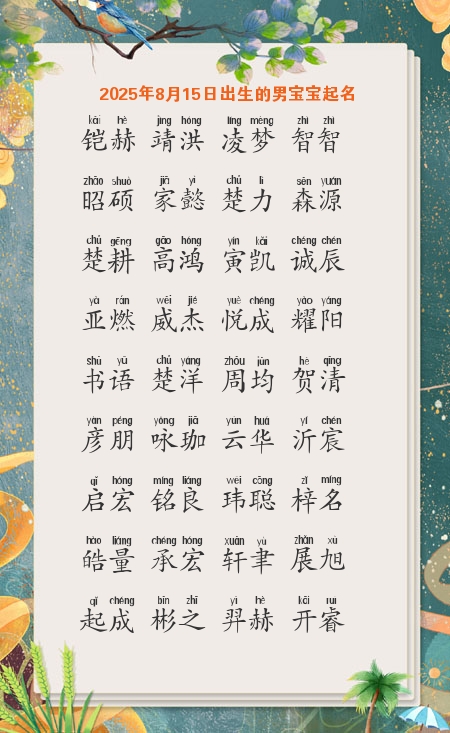 2025年8月15日出生的男宝宝起名
kǎi hè jìng hóng líng mèng zhì zhì
铠赫 靖洪 凌梦 智智
zhāo shuò jiā yì chǔ lì sēn yuán
昭硕 家懿 楚力 森源
chǔ gēng gāo hóng yín kǎi chéng chén
楚耕 高鸿 寅凯 诚辰
yà rán wēi jié yuè chéng yào yáng
亚燃 威杰 悦成 耀阳
shū yǔ chǔ yáng zhōu jūn hè qīng
书语 楚洋 周均 贺清
yàn péng yǒng jiā yún huá yí chén
彦朋 咏珈 云华 沂宸
qǐ hóng míng liáng wěi cōng zǐ míng
启宏 铭良 玮聪 梓名
hào liàng chéng hóng xuān yù zhǎn xù
皓量 承宏 轩聿 展旭
qǐ chéng bīn zhī yì hè kāi ruì
起成 彬之 羿赫 开睿